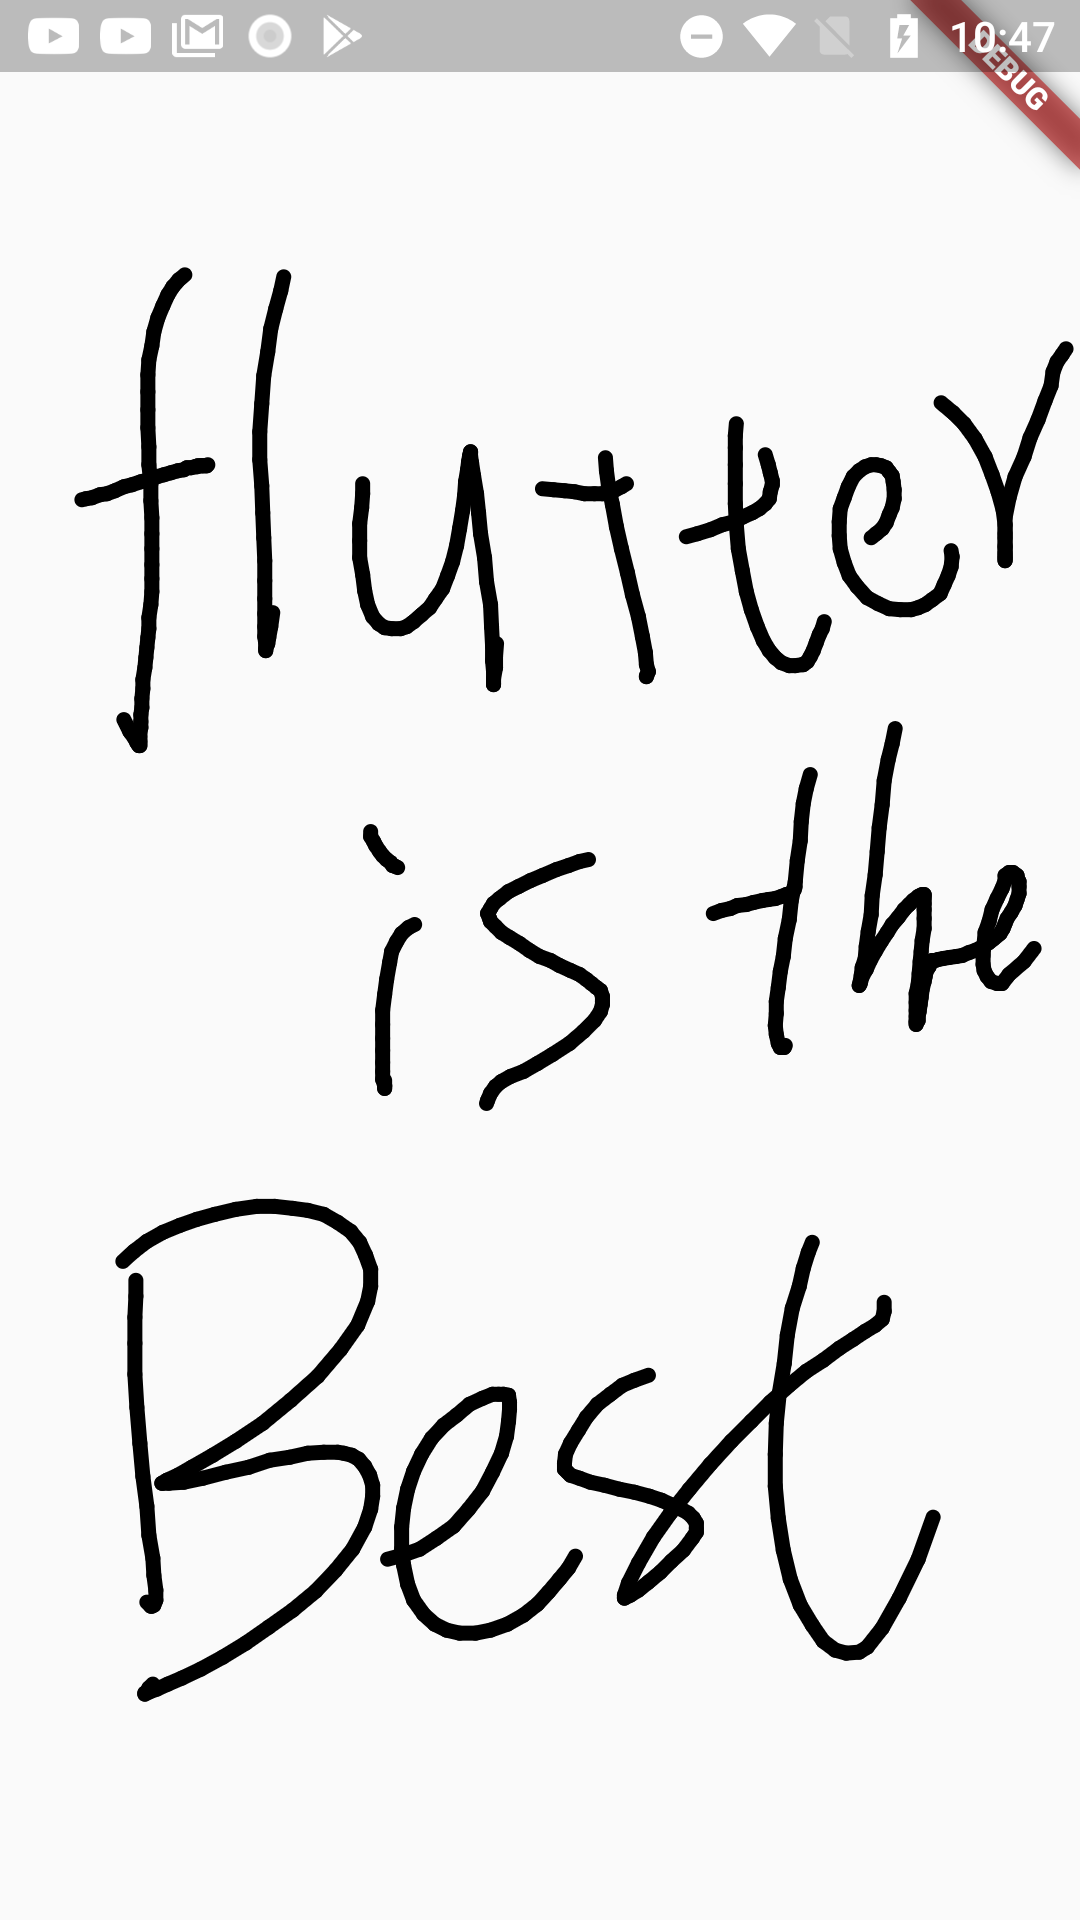 10:47
DEBUG
flutter
is the
Best